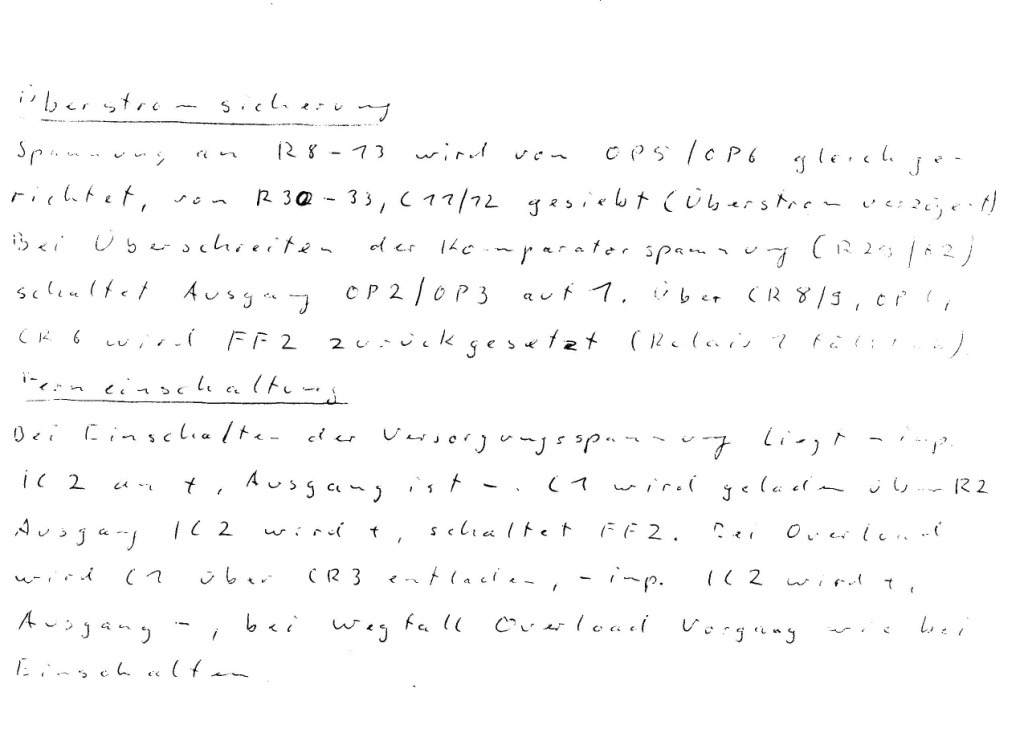 Überstromsicherung
Spannung an R8-13 wird von OP5/OP6 gleichge-
richtet, von R30-33, C11/12 gesiebt (Überstrom verzögert)
Bei Überschreiten der Komparatorspannung
schaltet Ausgang OP2/OP3 auf 1. Über CR8/9,
CR6 wird FF2 zurückgesetzt (Relais
Ferneinschaltung
Bei Einschalten der Versorgungsspannung liegt - inp.
IC2 an +, Ausgang ist -. C1 wird geladen über R2
Ausgang IC2 wird +, schaltet FF2. Bei Overload
wird C1 über CR3 entladen, - inp. IC2 wird +,
Ausgang -, bei Wegfall Overload Vorgang wie bei
Einschalten